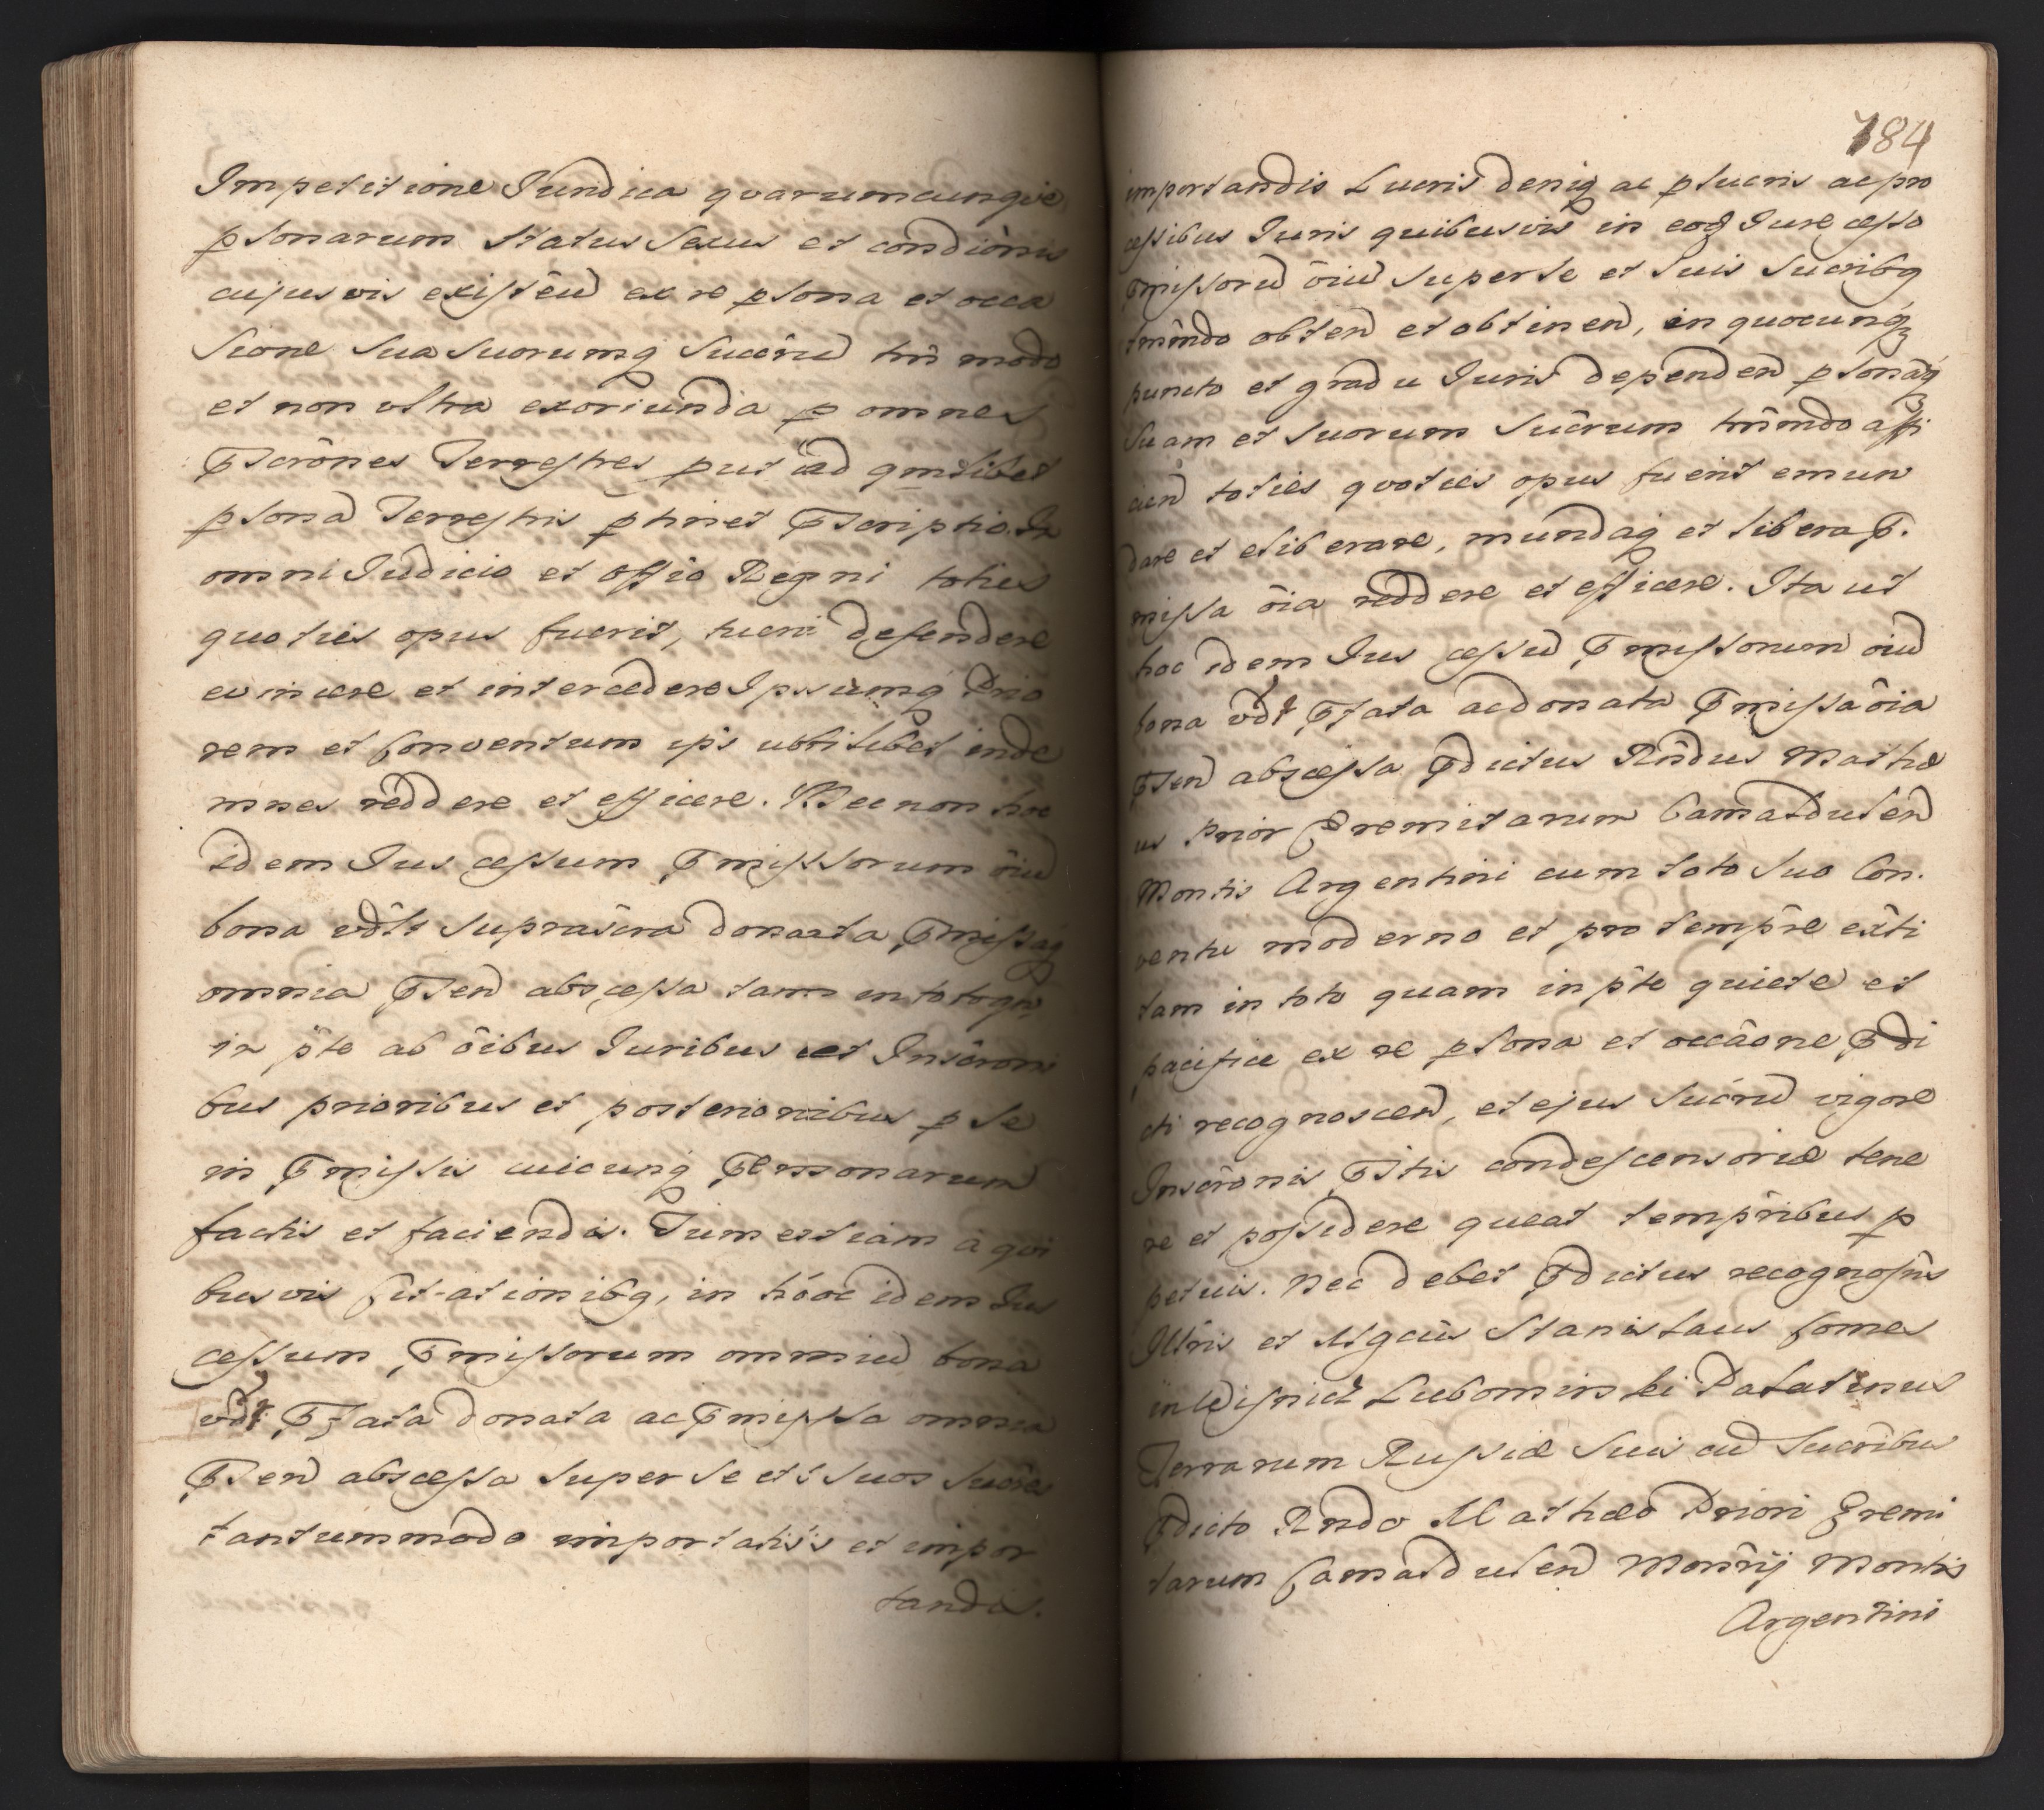 Impetitione Juridica qvarumcunqve
psonarum status sexus et condiônis
cujusvis existêñ ex re psona et occa
sione sua suorumq succrũ tm̃ modo
et non ultra exoriunda p omnes
Pscrônes Terrestres put ad qmlibet
psonã Terrestris ptinet Pscriptio. In
omni Judicio et Offio Regni toties
quoties opus fuerit, tueri defendere
evincere et intercedere Ipsumq Prio
rem et Conventum ips ubilibet inde
mnes reddere et efficere. Nec non hoc
idem Jus cessum Pmissorum oiũ
bona vdt suprascra donata Pmissaq
omnia Psen abscessa tam in toto qm
in pte ab oibus Juribus et Inscroni
bus prioribus et posterioribus p se
in Pmissis cuicunq Personarum
factis et faciendis. Tum etiam à qui
busvis Cit-ationibq, in hóoc idem Jus
cessum Pmissorum omniũ bona
vdt Pfata donata ac Pmissa omnia
Psen abscessa super se et suos succres
tantummodo importatis et impor
tandis.
184
importandis Lucris deniq ac plucris ac pro
cessibus Juris quibusvis in eod Jure cesso
Pmissorũ oiũ super se et suis succribq
tmmdo obten et obtinen, in quocunq
puncto et gradu Juris dependen psonãq
suam et suorum sucrum tmmdo affi
cien toties qvoties opus fuerit emun
dare et eliberare, mundaq et libera P.
missa oia reddere et efficere. Ita ut
hoc idem Jus cessũ Pmissorum oiũ
bona vdt Pfata ac donata Pmissa oia
Psen abscessa Pdictus Rndus Mathæ
us Prior Eremitarum Camaldulen
Montis Argentini cum toto suo Con.
ventu moderno et pro tempre exti
tam in toto quam in pte quiete et
pacifice ex re psona et occâone Pdi
cti recognoscen, et ejus sucrũ vigore
Inscronis Pstis condescensoriæ tene
re et possidere queat tempribus p
petuis. Nec debet Pdictus recognoscns
Illris et Mgcus Stanislaus Comes
in Wisnicz Lubomirski Palatinus
Terrarum Russiæ suis cũ sucribus
Pdicto Rndo Mathæo Priori Eremi
tarum Camaldulen Monrij Montis
Argentini